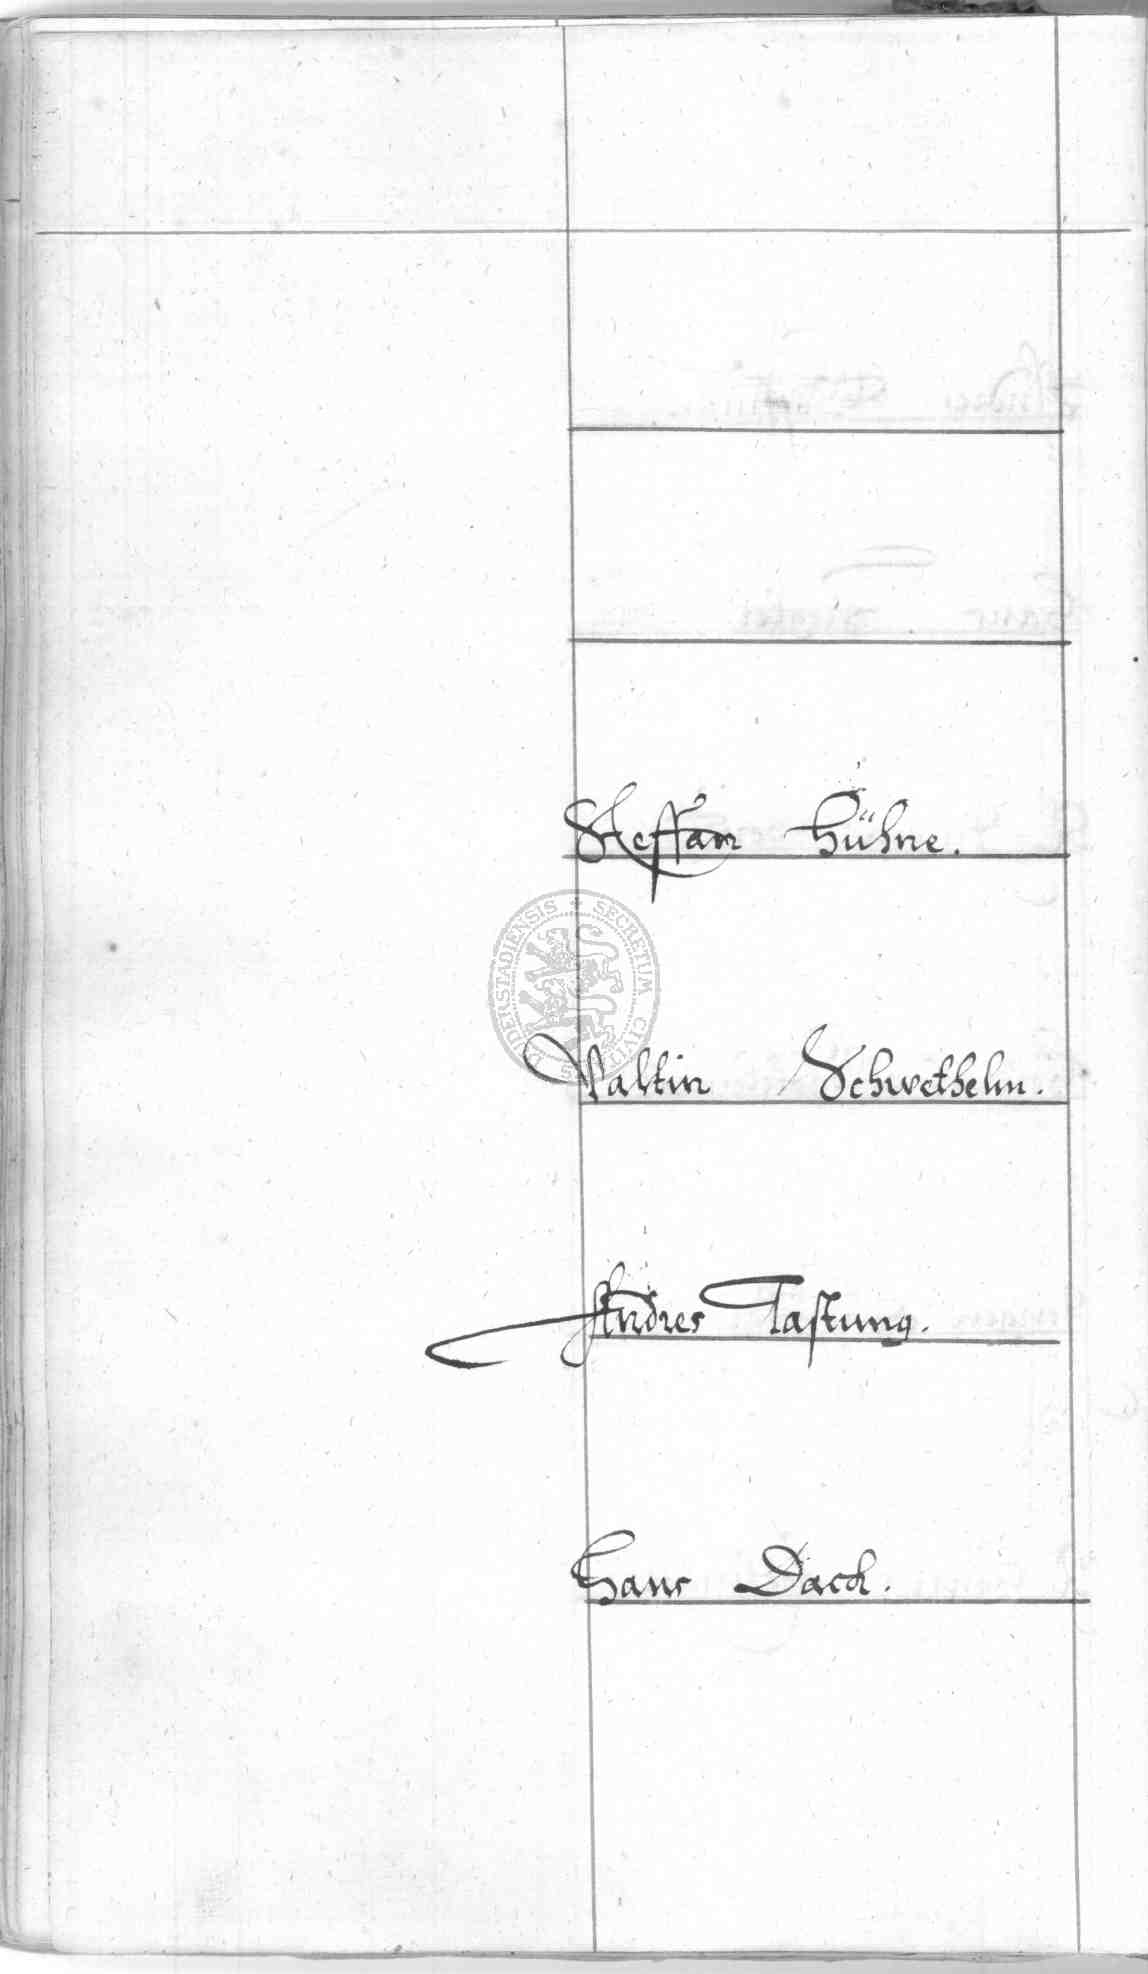 Steffan Hühne.
Valtin Schwethelm.
Andres Tastung.
Hans Dach.
SECRETUM CIVIT
DUDERSTADIENSIS